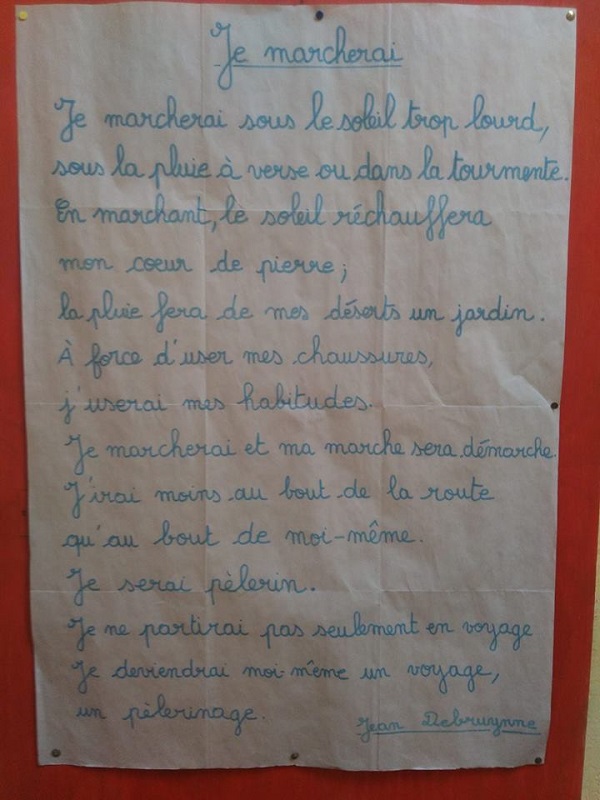 Je marcherai
Je marcherai sous le soleil trop lourd,
sous la pluie à verse ou dans la tourmente.
En marchant, le soleil réchauffera
mon coeur de pierre ;
la pluie fera de mes déserts un jardin.
À force d'user mes chaussures,
j'userai mes habitudes.
Je marcherai et ma marche sera démarche.
J'irai moins au bout de la route
qu'au bout de moi-même.
Je serai pèlerin.
Je ne partirai pas seulement en voyage
Je deviendrai moi-même un voyage,
un pèlerinage.
Jean Debruynne